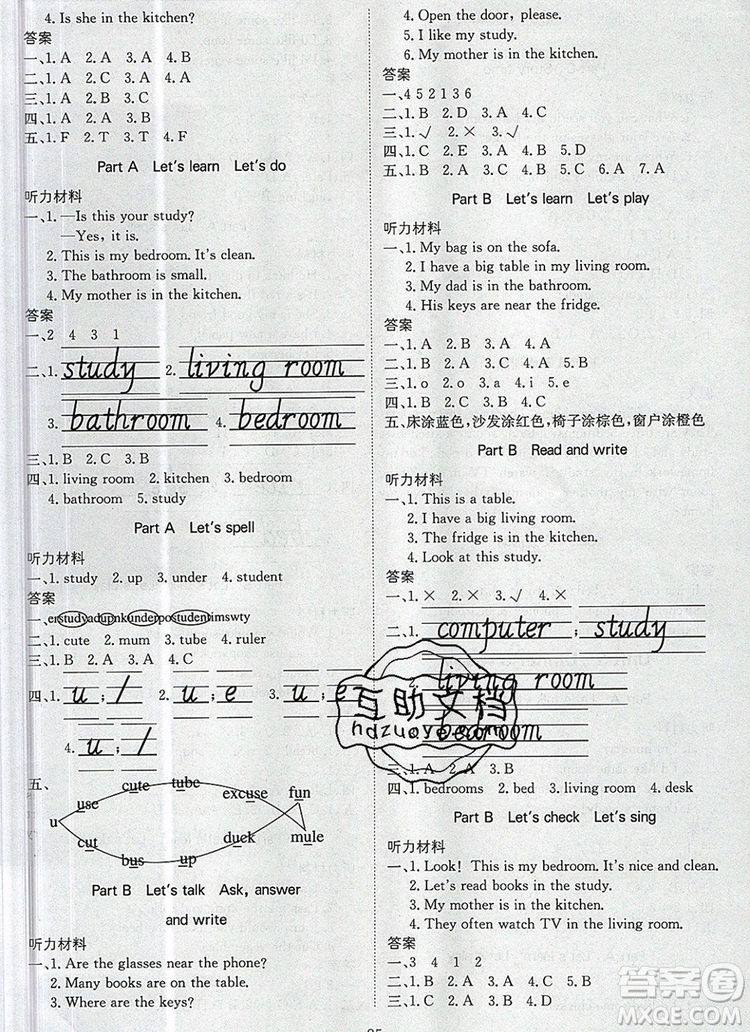 4. Is she in the kitchen?
答案
一、1. A  2. A  3. A  4. B
二、1. B  2. B  3. A  4. A
三、1. A  2. B  3. B  4. A
四、1. A  2. A  3. A  4. B
五、1. F  2. T  3. T  4. F
Part A  Let's learn  Let's do
听力材料
一、1. —Is this your study?
—Yes, it is.
2. This is my bedroom. It's clean.
3. The bathroom is small.
4. My mother is in the kitchen.
答案
一、2  4  3  1
二、1. study  2. living room
3. bathroom  4. bedroom
三、1. B  2. A  3. C  4. B
四、1. living room  2. kitchen  3. bedroom
4. bathroom  5. study
Part A  Let's spell
听力材料
一、1. study  2. up  3. under  4. student
答案
一、erstudyadupnkunderpostudentimswty
二、1. cute  2. mum  3. tube  4. ruler
三、1. B  2. A  3. B  4. A
四、1. u ; /  2. u ; e  3. u ; e
4. u ; /
五、
cute  tube
use  excuse  fun
u
cut  duck  mule
bus  up
Part B  Let's talk  Ask, answer
and write
听力材料
一、1. Are the glasses near the phone?
2. Many books are on the table.
3. Where are the keys?
4. Open the door, please.
5. I like my study.
6. My mother is in the kitchen.
答案
一、4 5 2 1 3 6
二、1. B  2. D  3. A  4. C
三、1. √  2. ×  3. √
四、1. C  2. E  3. A  4. B  5. D
五、1. B  2. B  3. A  4. C  5. B  6. A  7. A
Part B  Let's learn  Let's play
听力材料
一、1. My bag is on the sofa.
2. I have a big table in my living room.
3. My dad is in the bathroom.
4. His keys are near the fridge.
答案
一、1. A  2. A  3. B  4. B
二、1. B  2. C  3. D  4. A
三、1. o  2. o  3. a  4. i
四、1. C  2. A  3. B  4. B
五、床涂蓝色，沙发涂红色，椅子涂棕色，窗户涂橙色
Part B  Read and write
听力材料
一、1. This is a table.
2. I have a big living room.
3. The fridge is in the kitchen.
4. Look at this study.
答案
一、1. ×  2. ×  3. √  4. ×
二、1. computer ; study
2. living room
bedroom
三、1. A  2. A  3. B
四、1. bedrooms  2. bed  3. living room  4. desk
Part B  Let's check  Let's sing
听力材料
一、1. Look! This is my bedroom. It's nice and clean.
2. Let's read books in the study.
3. My mother is in the kitchen.
4. They often watch TV in the living room.
答案
一、3  4  1  2
二、1. C  2. B  3. B  4. A
三、1. C  2. A  3. B  4. C
互助文档
答案圈
MXQE.COM